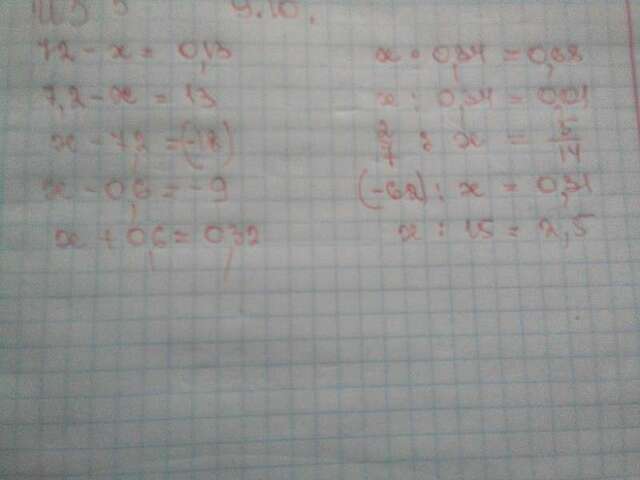 9.10.
72 - x = 0,13
7,2 - x = 13
x - 7,2 = (-18)
x - 0,6 = -9
x + 0,6 = 0,32
x · 0,34 = 0,68
x : 0,34 = 0,01
2/7 : x = 5/14
(-62) : x = 0,31
x : 15 = 2,5